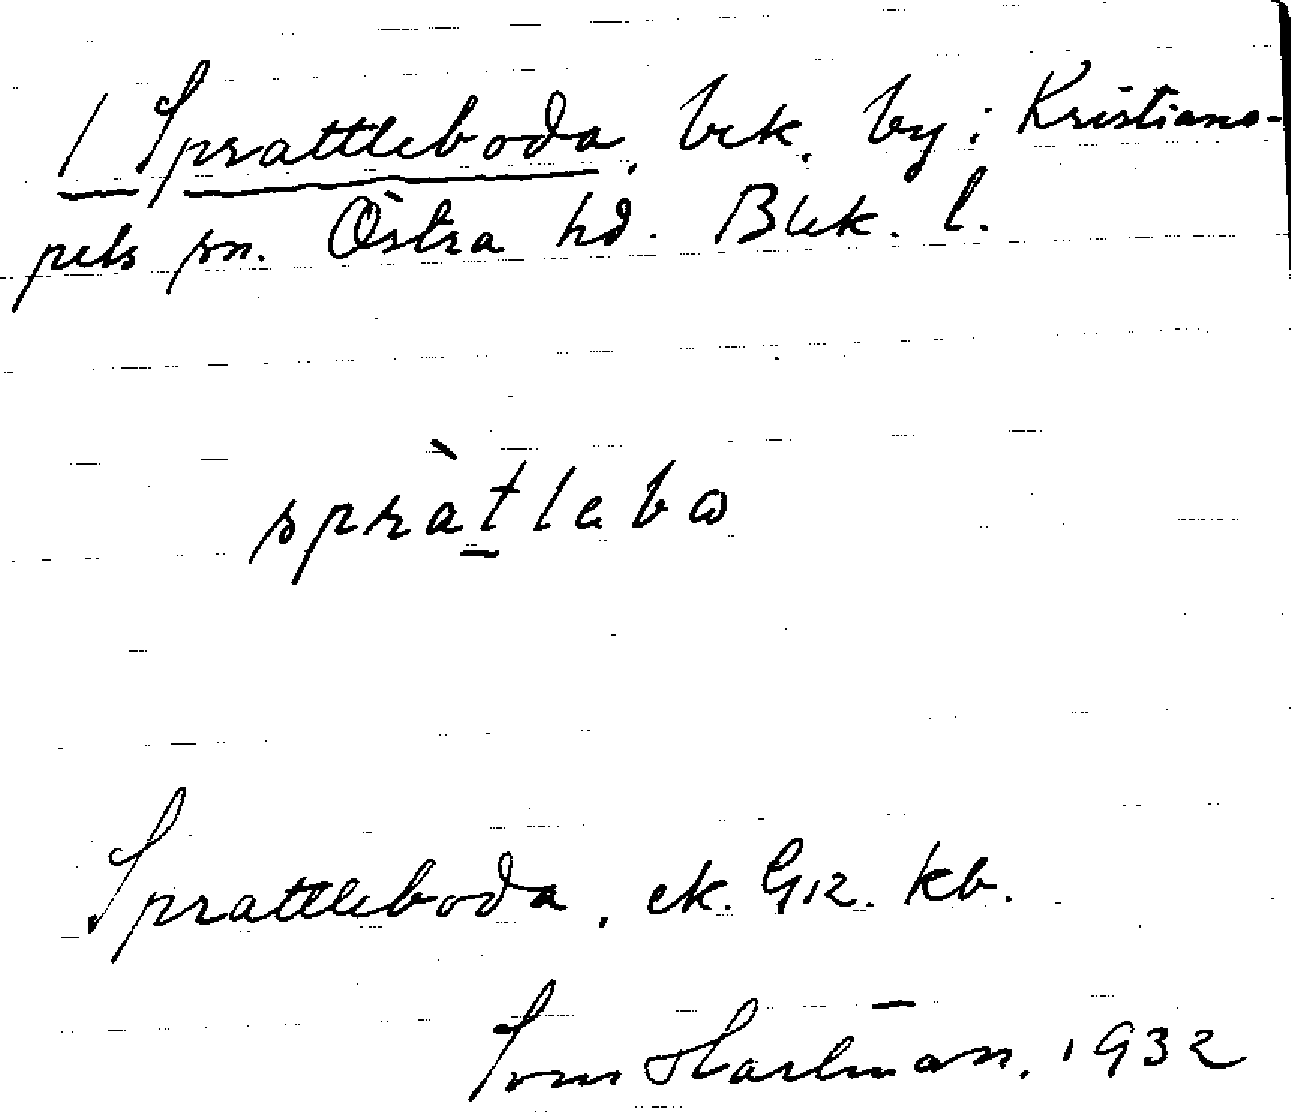 1 Sprattleboda, bek. by i Kristiano-
pels sn. Östra hd. Blek. l.
spràtlebω
Sprattleboda, ek. G12. kb.
Tom Hartman. 1932